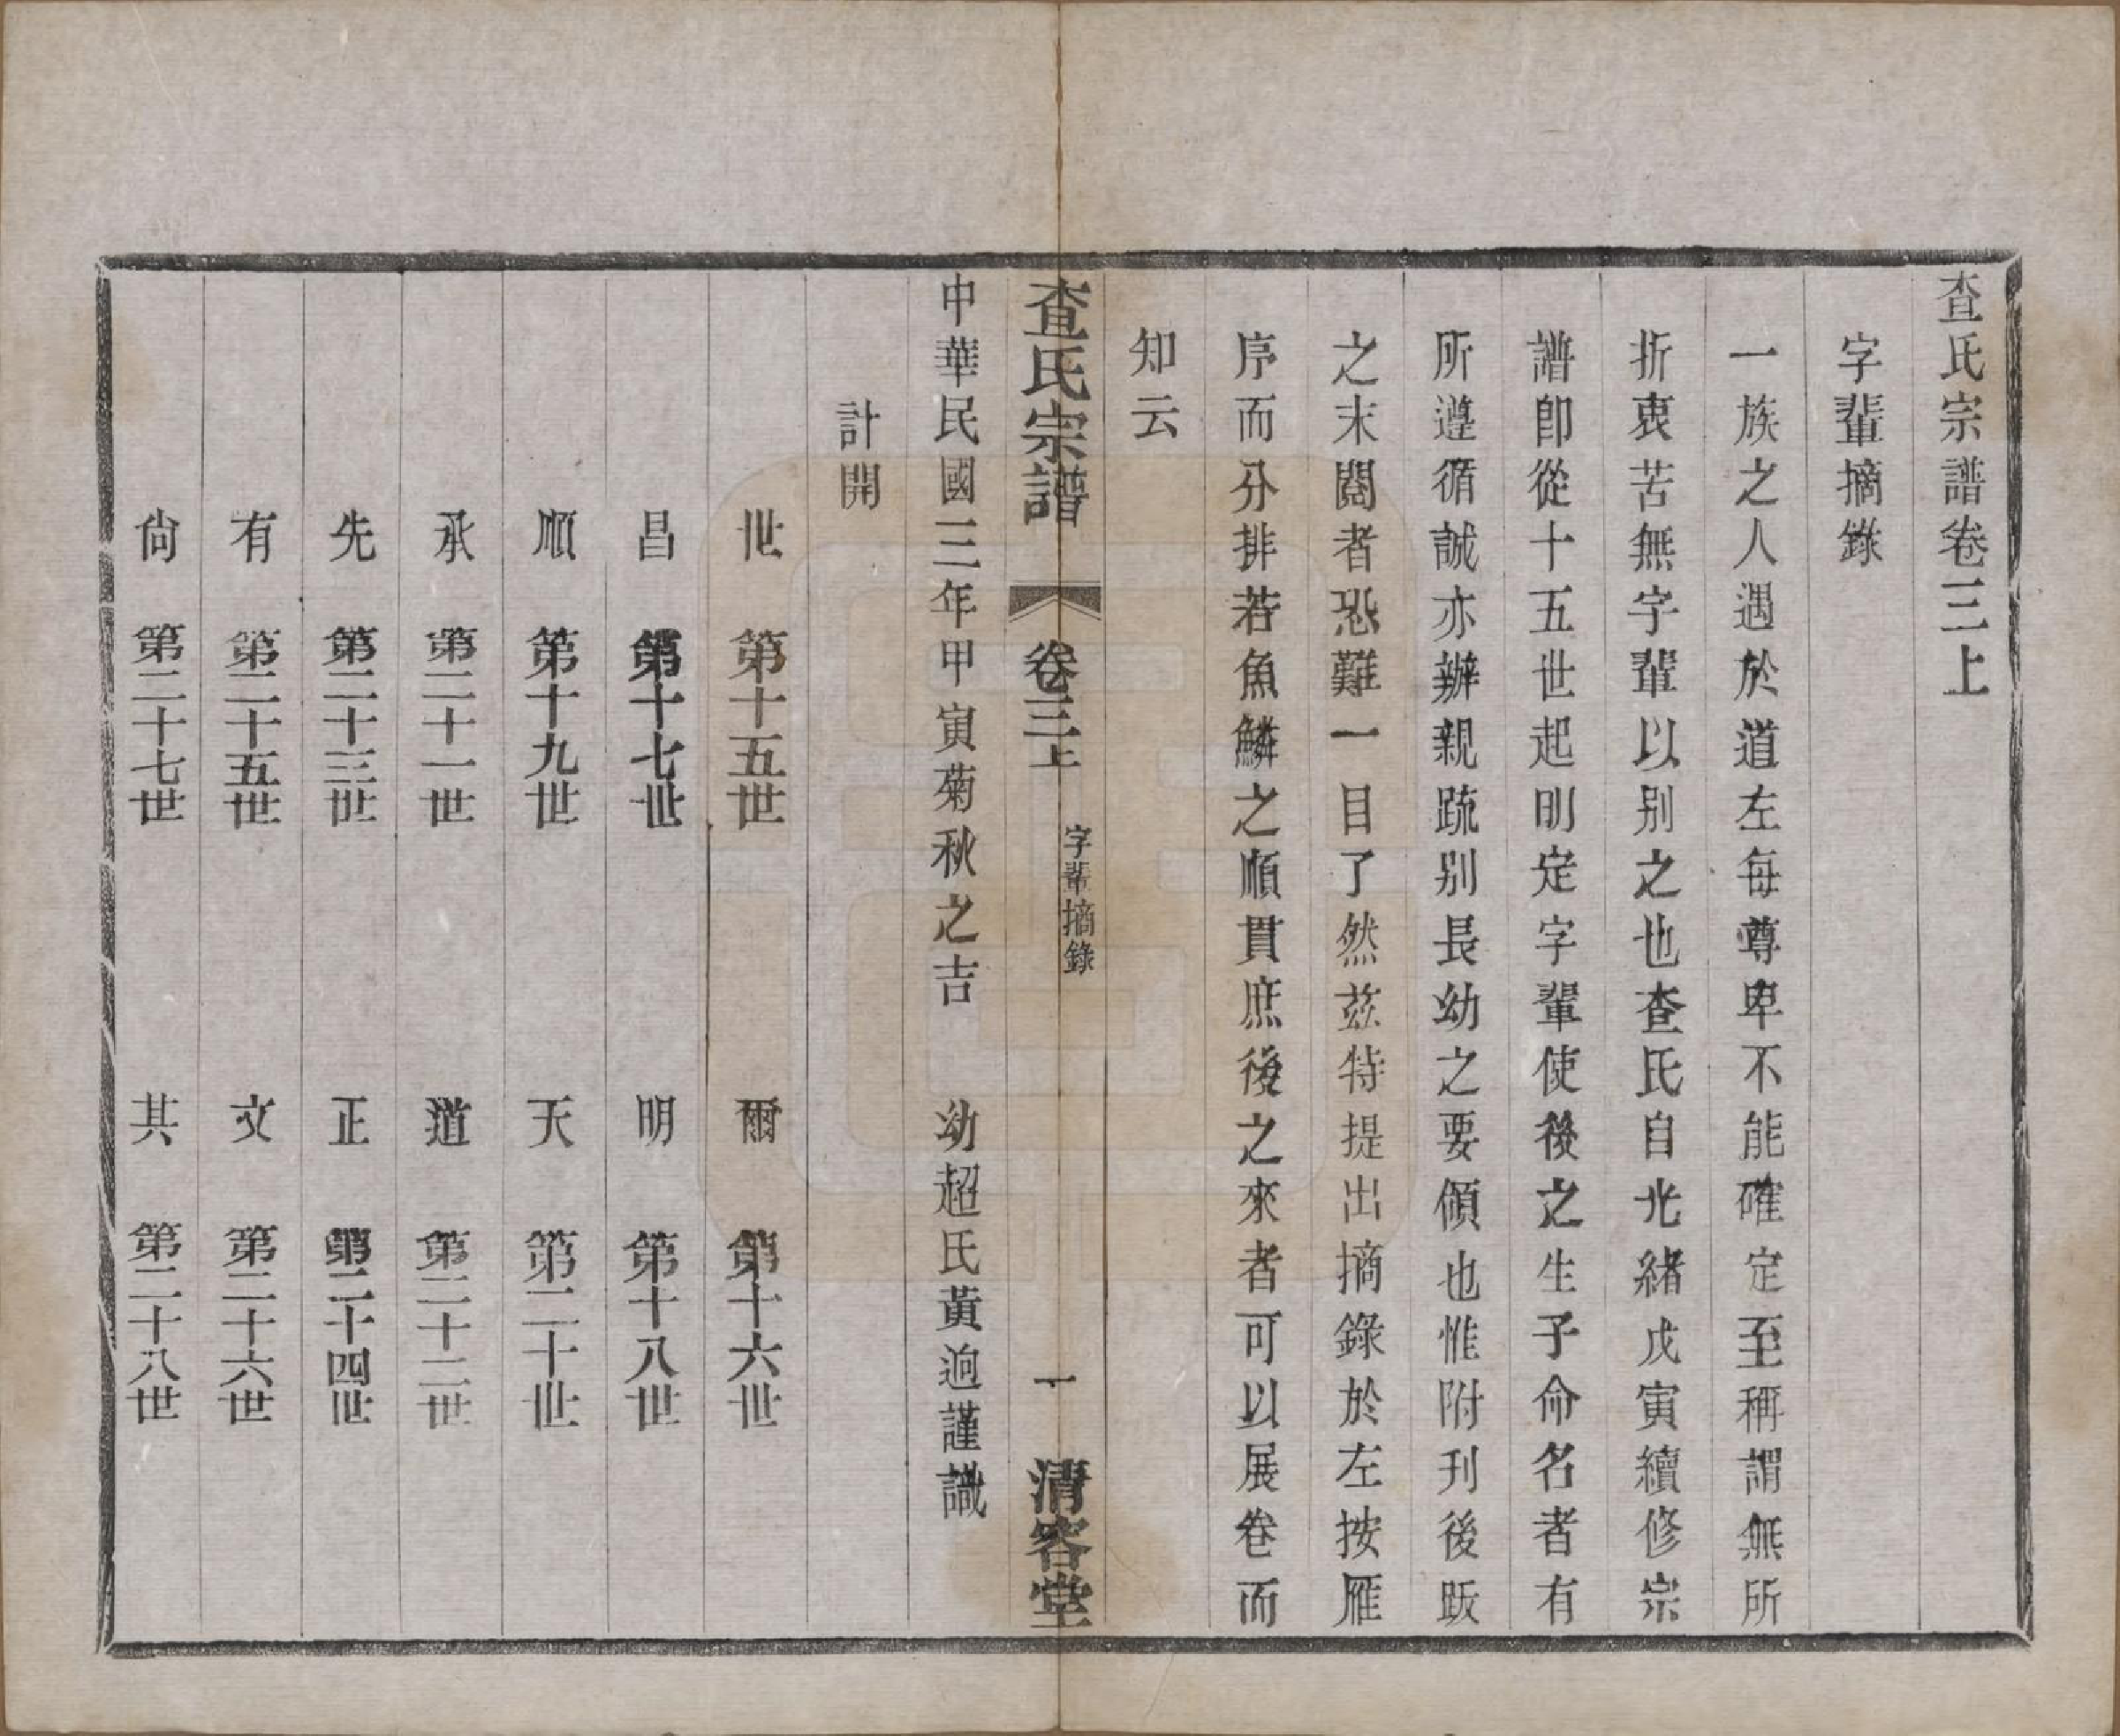 查氏宗譜卷三上
字輩摘錄
一族之人遇於道左每尊卑不能確定至稱謂無所
折衷苦無字輩以别之也查氏自光緒戊寅續修宗
譜卽從十五世起明定字輩使後之生子命名者有
所遵循誠亦辦親疏别長幼之要領也惟附刊後跋
之末閱者恐難一目了然茲特提出摘錄於左按雁
序而分排若魚鱗之順貫庶後之來者可以展卷而
知云
查氏宗譜 卷三上 字輩摘錄 一 清容堂
中華民國三年甲寅菊秋之吉 幼超氏黃逈謹識
計開
世 第十五世 爾 第十六世
昌 第十七世 明 第十八世
順 第十九世 天 第二十世
承 第二十一世 道 第二十二世
先 第二十三世 正 第二十四世
有 第二十五世 文 第二十六世
尙 第二十七世 其 第二十八世